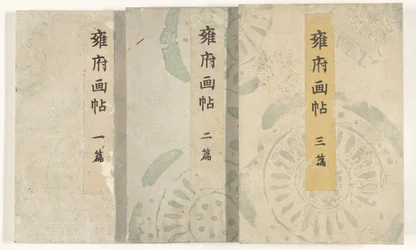 雍府画帖 一篇
雍府画帖 二篇
雍府画帖 三篇